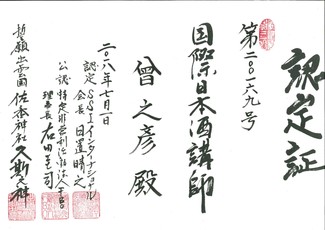 認定証
第二〇一六九号
国際日本酒講師
曾之彦 殿
二〇一八年七月一日
認定 SSIインターナショナル
会長 日置晴之
公認 特定非営利活動法人FBO
理事長 右田圭司
佐香神社